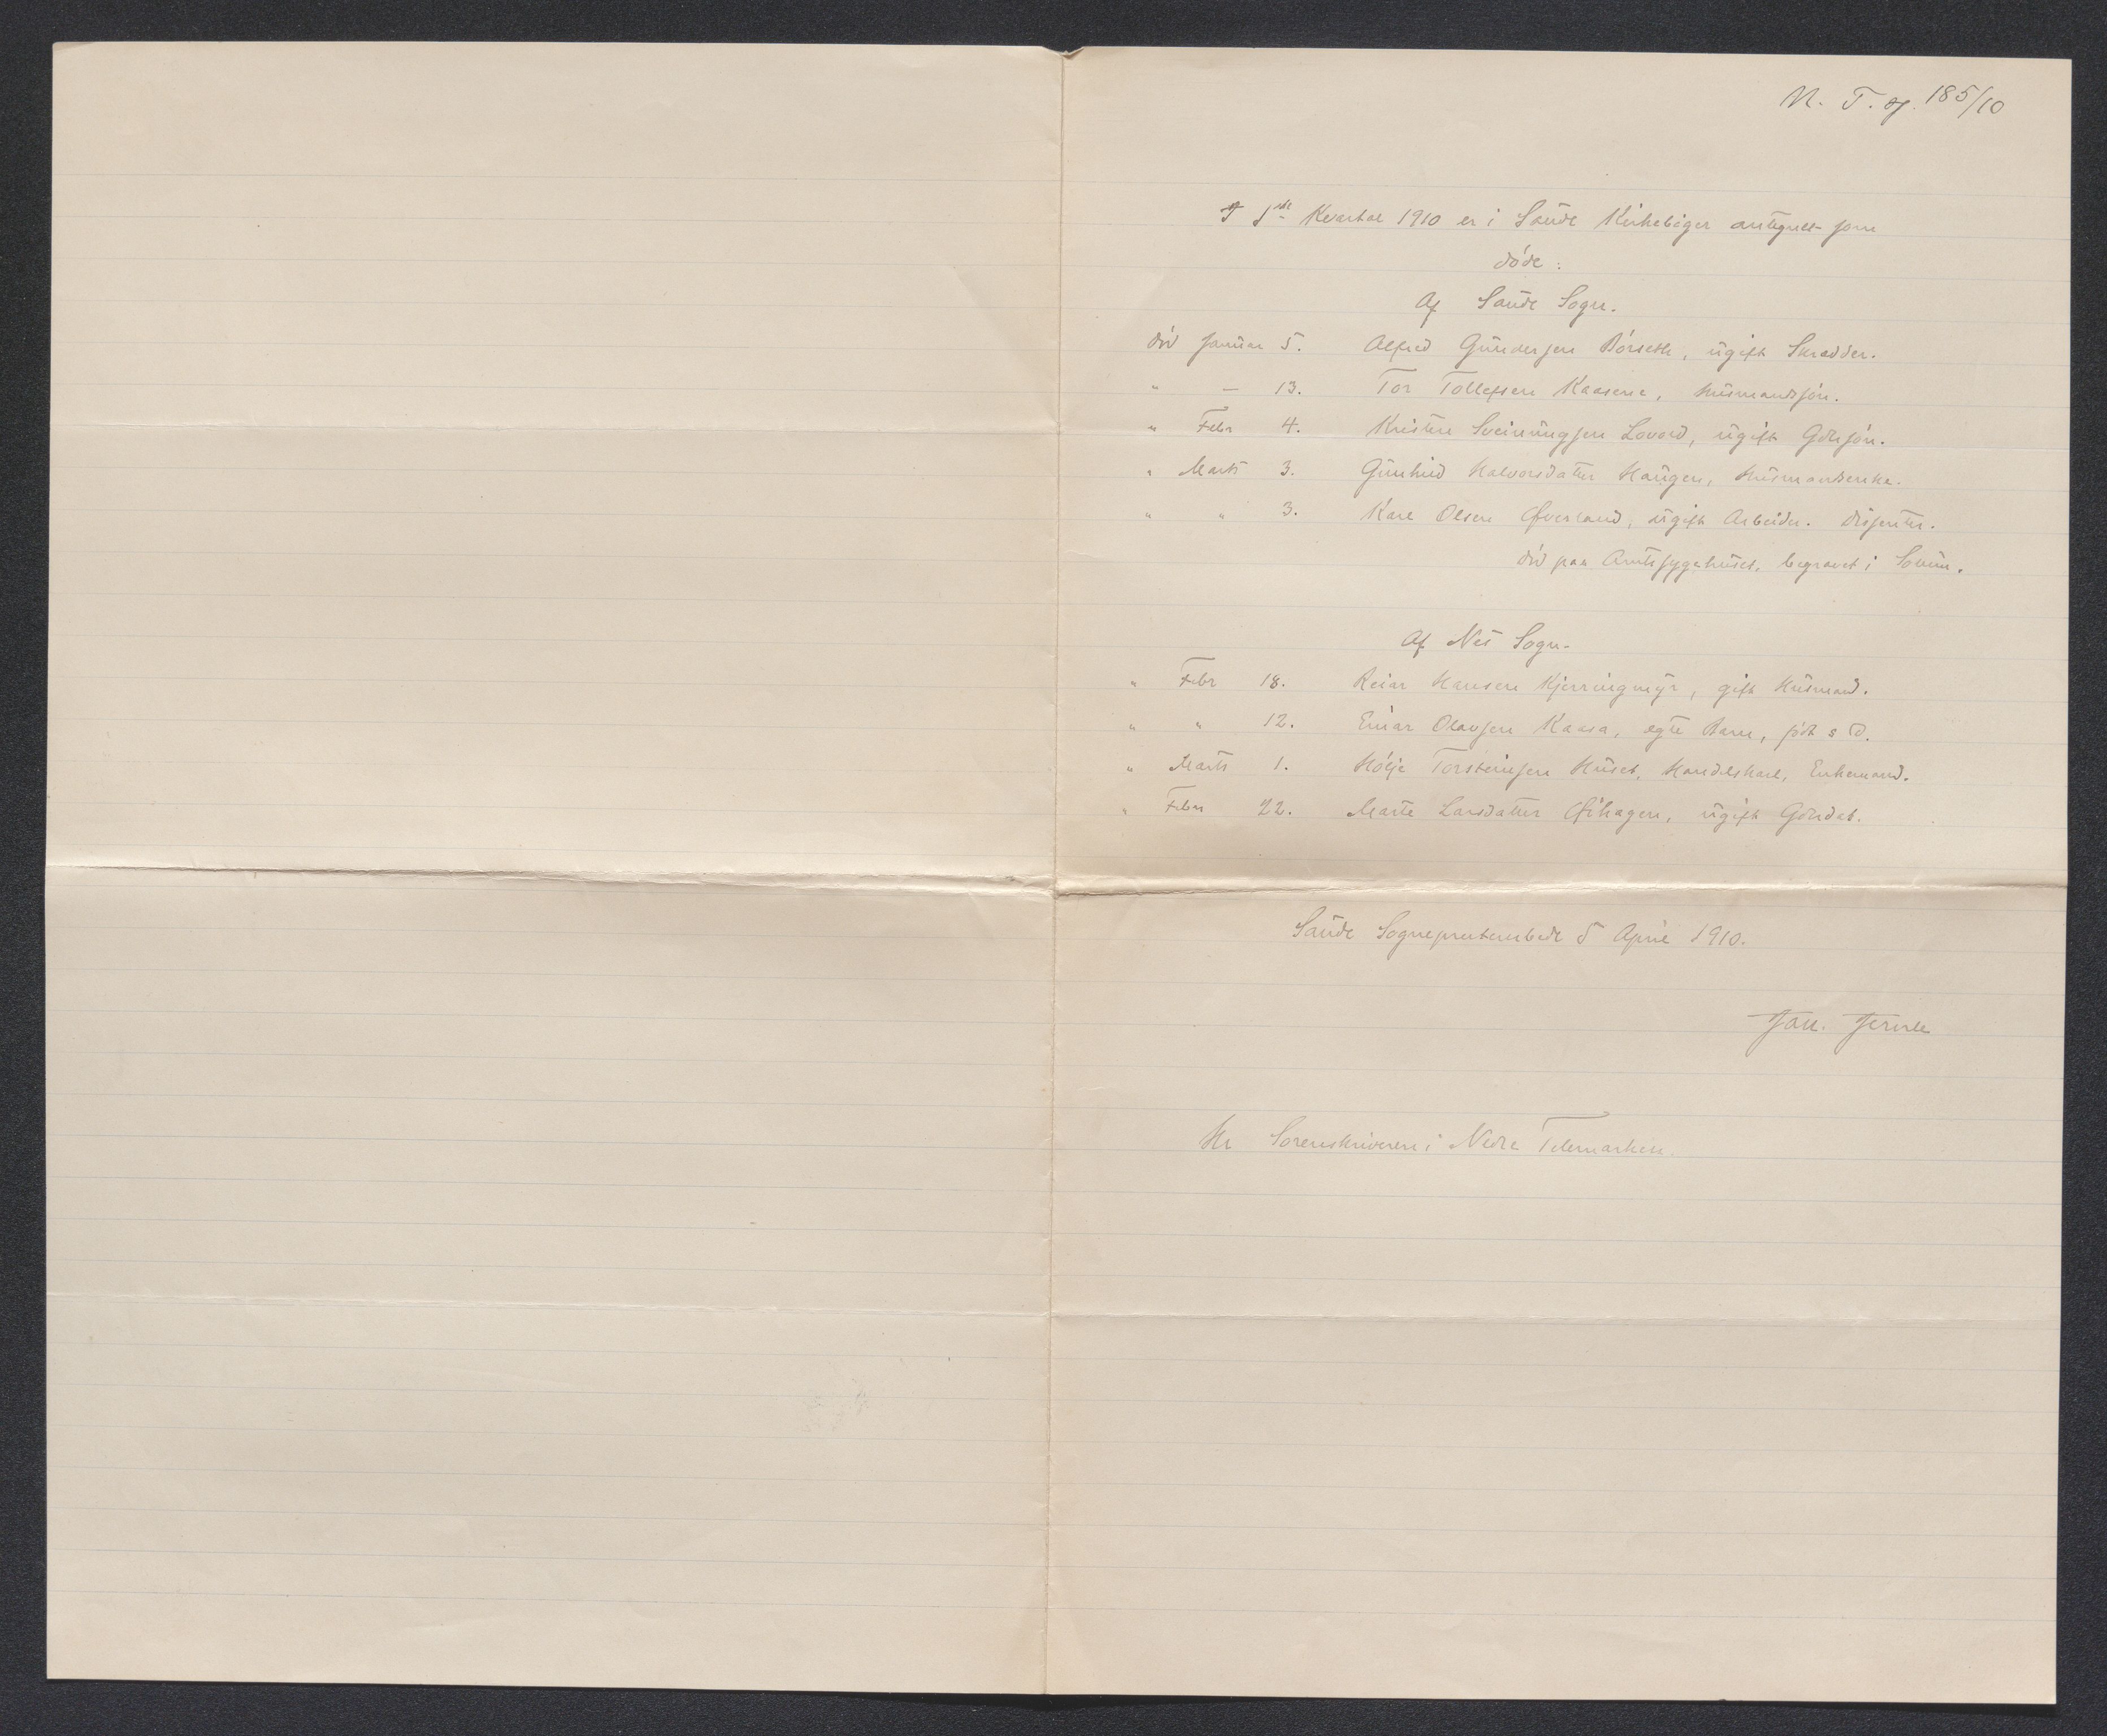 N. T. og. 185/10
I 1ste Kvartal 1910 er i Saude Kirkebøger antegnet som
døde:
Af Saude Sogn.
død Januar 5. Alfred Gundersen Børseth, ugift Skrædder.
" — 13. Tor Tollefsen Kaasene, Husmandssøn.
" Febr 4. Kristen Sveinungsen Lovold, ugift Grdsøn.
" Marts 3. Gunhild Halvorsdatter Haugen, Husmandsenke.
" " 3. Karl Olsen Øverland, ugift Arbeider. Disenter.
død paa Amtssygehuset, begravet i Solum.
Af Nes Sogn.
" Febr 18. Reiar Hansen Kjerringmyr, gift Husmand.
" " 12. Einar Olavsen Kaasa, egte Barn, født s D.
" Marts 1. Hølje Torsteinsen Huset, Handelskarl, Enkemand.
" Febr 22. Marte Larsdatter Øihagen, ugift Grddat.
Saude Sogneprestembede 5 April 1910.
Hr Sorenskriveren i Nedre Telemarken.